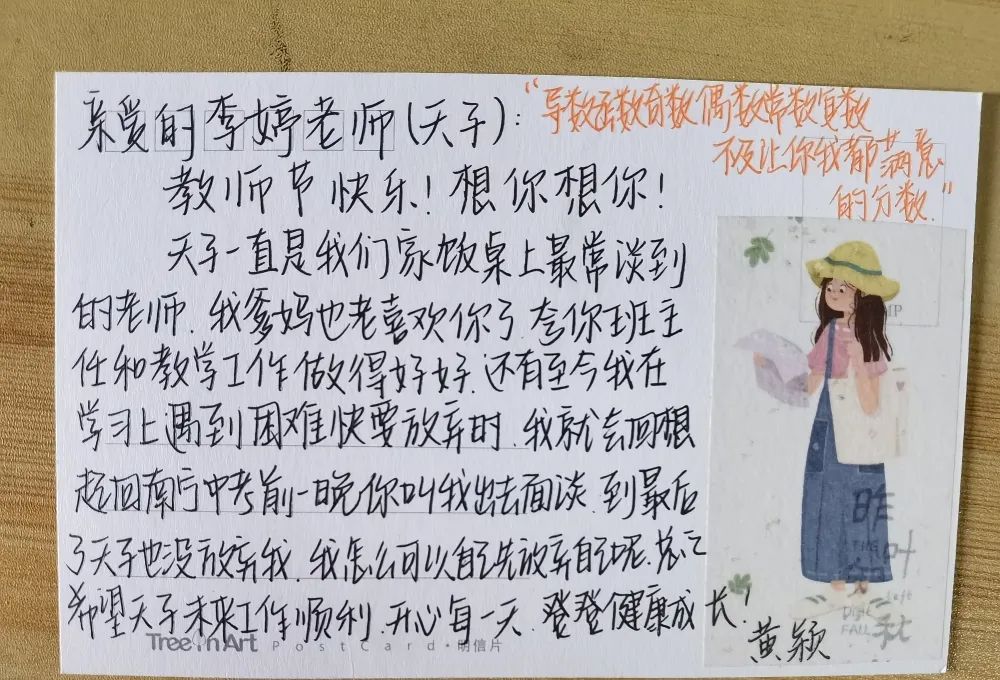 亲爱的李婷老师(天子):
“导数函数奇数偶数常数复数
不及让你我都满意
的分数.”
教师节快乐!想你想你!
天子一直是我们家饭桌上最常谈到
的老师.我爹妈也老喜欢你了夸你班主
任和教学工作做得好好.还有至今我在
学习上遇到困难快要放弃时.我就会回想
起回南宁中考前一晚你叫我出去面谈.到最后
了天子也没放弃我.我怎么可以自己先放弃自己呢.总之
希望天子未来工作顺利.开心每一天.登登健康成长!
黄颖
Tree in Art PostCard·明信片
昨
叶
秋
Left
FALL